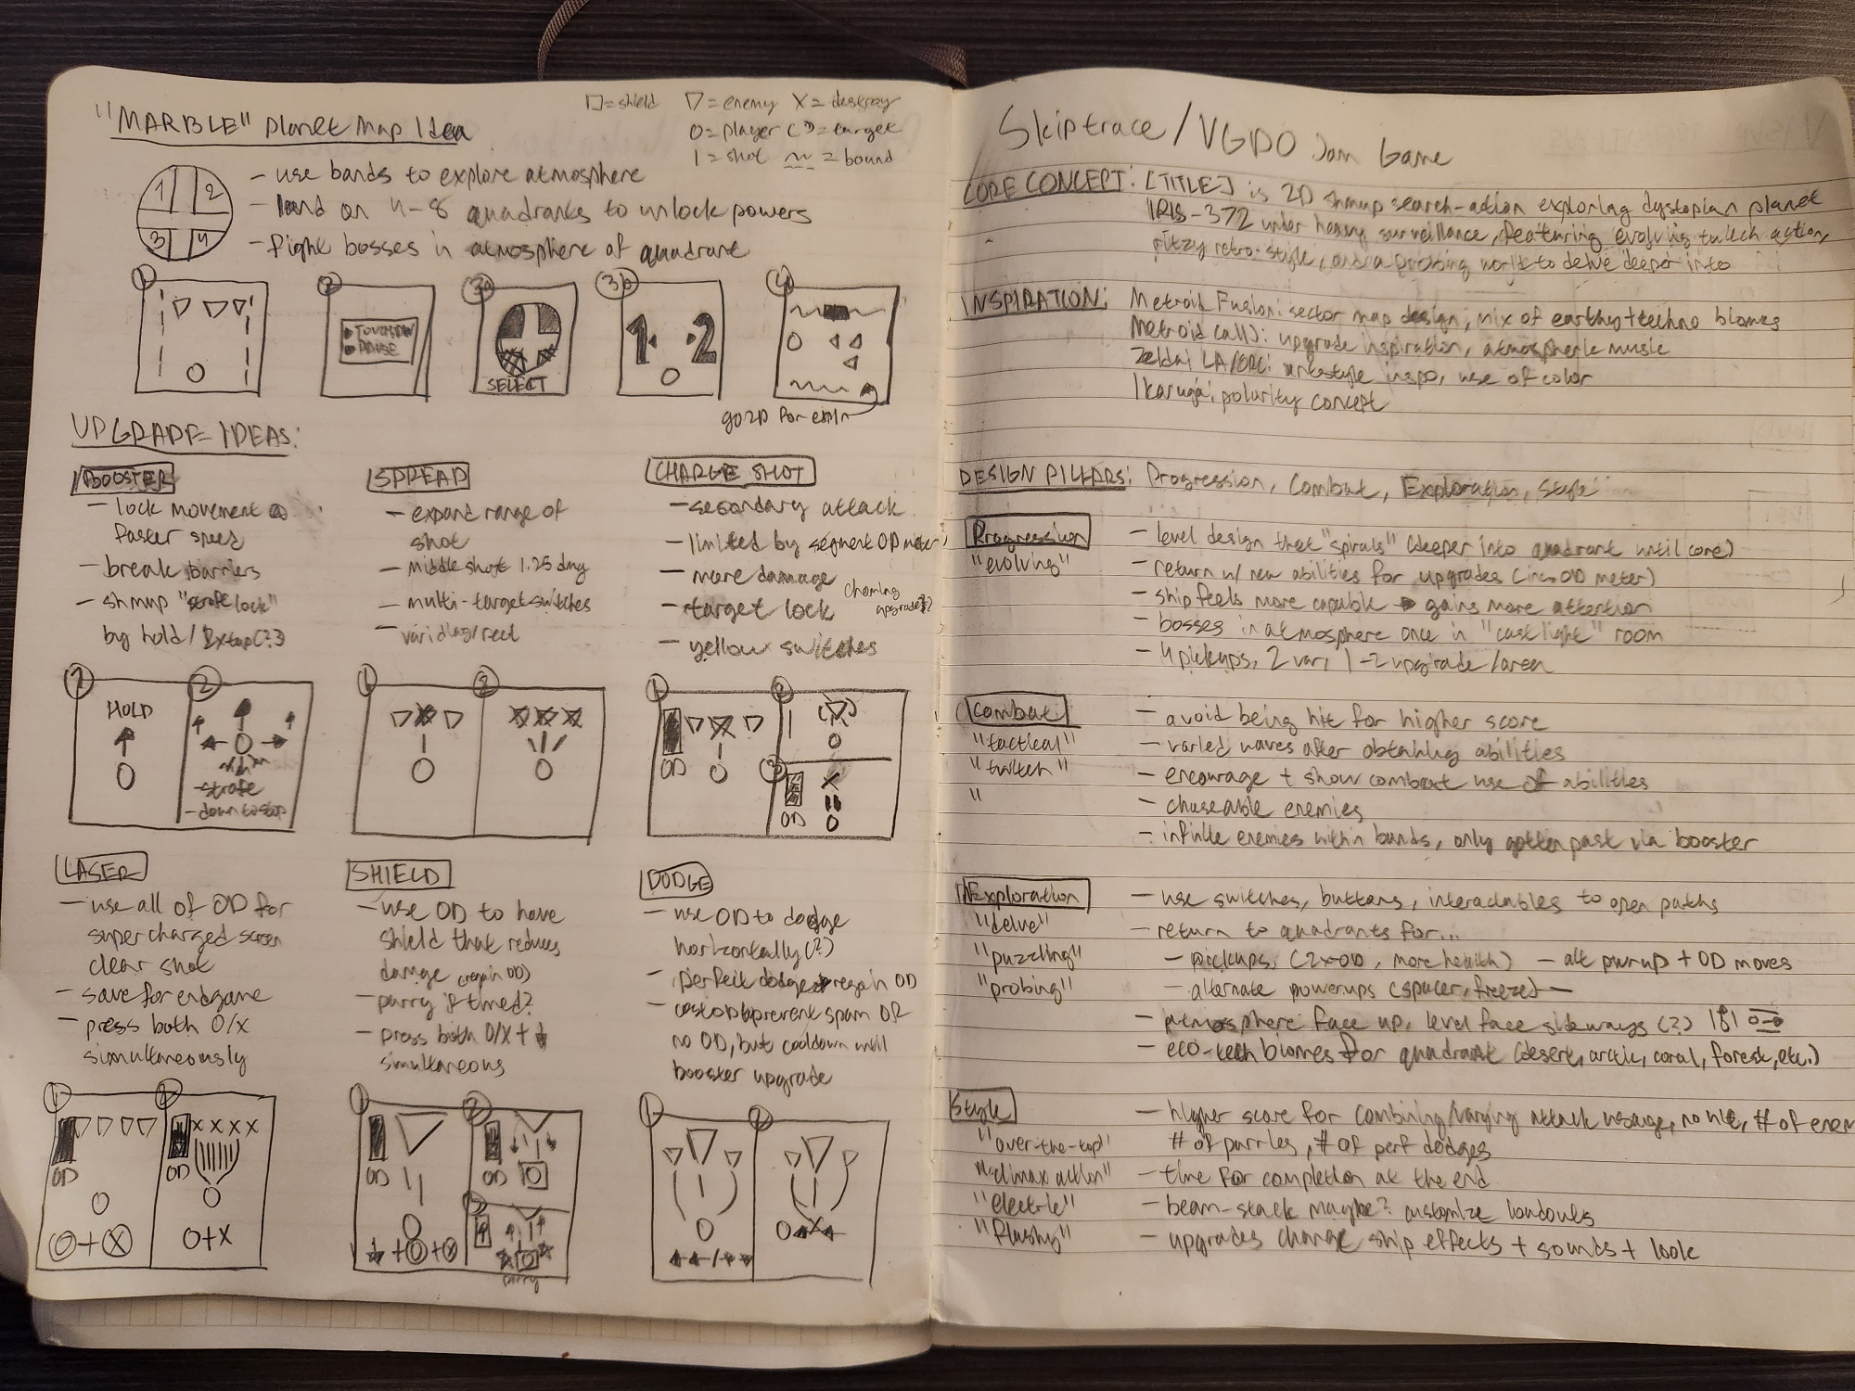 "MARBLE" planet map idea
□=shield ▽=enemy X=destroy
O=player ( )=target
I=shot ~=bound
1 2
3 4
- use bands to explore atmosphere
- land on 4-8 quadrants to unlock powers
- fight bosses in atmosphere of quadrant
1 2 3a 3b 4
PAUSE
SELECT
1 2
go 2D for expln
UPGRADE IDEAS:
BOOSTER
- lock movement
faster speed
- break barriers
- shmup "strafe lock"
by hold/2xtap(?)
1 2
HOLD
- strafe
- down to stop
SPREAD
- expand range of
shot
- middle shot 1.25 dmg
- multi-target switches
1 2
CHARGE SHOT
- secondary attack
- limited by segment OD meter
- more damage
- target lock
- yellow switches
1 2
OD
3
OD
LASER
- use all of OD for
supercharged screen
clear shot
- save for endgame
- press both O/X
simultaneously
1 2
OD OD
O+X O+X
SHIELD
- use OD to have
shield that reduces
damage (regain OD)
- parry if timed?
- press both O/X + ↓
simultaneous
1 2
OD OD
3
parry
DODGE
- use OD to dodge
horizontally(?)
- perfect dodge → regain OD
- cost OD to prevent spam OR
no OD, but cooldown until
booster upgrade
1 2
Skiptrace/VGDO Jam Game
CORE CONCEPT: [TITLE] is 2D shmup search-action exploring dystopian planet
IRIS-372 under heavy surveillance, featuring evolving twitch action,
ritzy retro-style, and a probing world to delve deeper into
INSPIRATION: Metroid Fusion: sector map design, mix of earthy+techno biomes
Metroid (all): upgrade inspiration, atmospheric music
Zelda: LA/ORC: artstyle inspo, use of color
Ikaruga: polarity concept
DESIGN PILLARS: Progression, Combat, Exploration, Style
Progression
"evolving"
- level design that "spirals" (deeper into quadrant until core)
- return w/ new abilities for upgrades (inc. OD meter)
- ship feels more capable → gains more attention
- bosses in atmosphere once in "cast light" room
- 4 pickups, 2 var, 1-2 upgrade/area
Combat
"tactical"
"twitch"
"
- avoid being hit for higher score
- varied waves after obtaining abilities
- encourage + show combat use of abilities
- chaseable enemies
- infinite enemies within bands, only gotten past via booster
Exploration
"delve"
"puzzling"
"probing"
- use switches, buttons, interactables to open paths
- return to quadrants for...
- pickups, (2x OD, more health) - alt pwrup + OD moves
- alternate powerups (spacer, freeze) -
- atmosphere face up, level face sideways (?)
- eco-tech biomes for quadrant (desert, arctic, coral, forest, etc.)
Style
"over-the-top"
"climax action"
"electric"
"flashy"
- higher score for combining/varying attack usage, no hit, # of enem
# of parries, # of perf dodges
- time for completion at the end
- beam-stack maybe? customize loadouts
- upgrades change ship effects + sounds + look